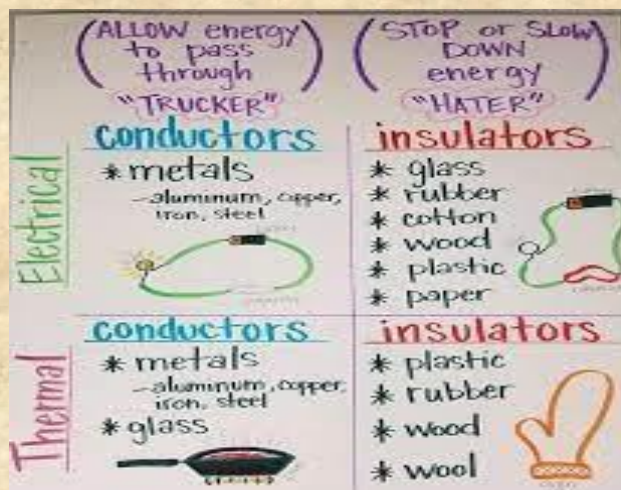 (ALLOW energy
to pass
through)
"TRUCKER"
(STOP or SLOW
DOWN
energy)
"HATER"
Electrical
conductors
* metals
- aluminum, copper,
iron, steel
insulators
* glass
* rubber
* cotton
* wood
* plastic
* paper
Thermal
conductors
* metals
- aluminum, copper,
iron, steel
* glass
insulators
* plastic
* rubber
* wood
* wool